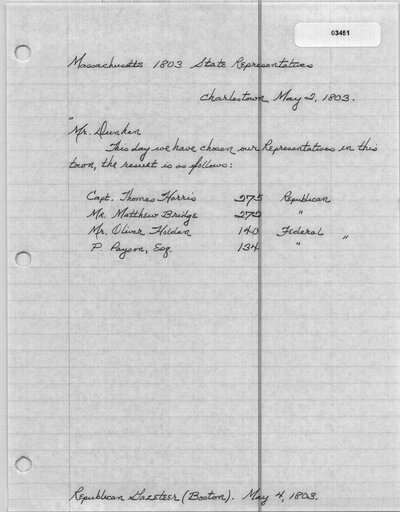 03451
Massachusetts 1803 State Representatives
Charlestown, May 2, 1803.
"
Mr. Dunham
This day we have chosen our Representatives in this
town, the result is as follows:
Capt. Thomas Harris 275 Republican
Mr. Matthew Bridge 272 "
Mr. Oliver Holden 140 Federal
P. Payson, Esq. 134 " "
Republican Gazeteer (Boston). May 4, 1803.